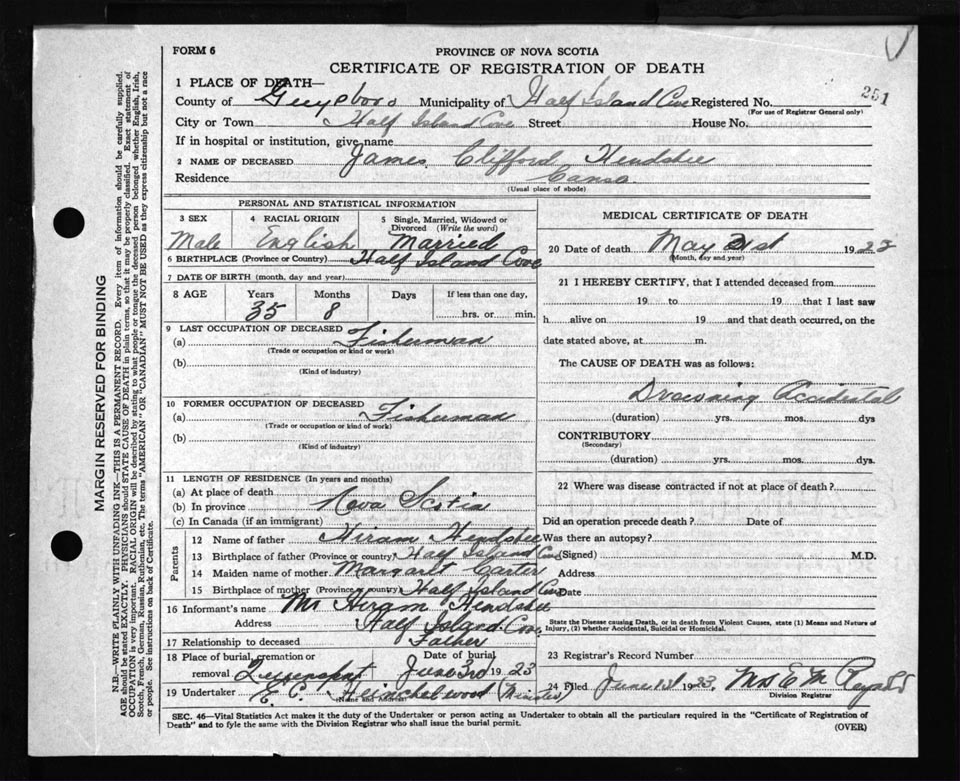 FORM 6
PROVINCE OF NOVA SCOTIA
CERTIFICATE OF REGISTRATION OF DEATH
1 PLACE OF DEATH—
County of Guysboro Municipality of Half Island Cove Registered No. 251
(For use of Registrar General only)
City or Town Half Island Cove Street House No.
If in hospital or institution, give name
2 NAME OF DECEASED James Clifford Hendsbee
Residence Canso.
(Usual place of abode)
PERSONAL AND STATISTICAL INFORMATION
3 SEX
Male
4 RACIAL ORIGIN
English
5 Single, Married, Widowed or Divorced (Write the word)
Married
6 BIRTHPLACE (Province or Country) Half Island Cove
7 DATE OF BIRTH (month, day and year)
8 AGE Years Months Days If less than one day,
35 8 hrs. or min.
9 LAST OCCUPATION OF DECEASED
(a) Fisherman
(Trade or occupation or kind or work)
(b)
(Kind of industry)
10 FORMER OCCUPATION OF DECEASED
(a) Fisherman
(Trade or occupation or kind of work)
(b)
(Kind of industry)
11 LENGTH OF RESIDENCE (In years and months)
(a) At place of death
(b) In province Nova Scotia
(c) In Canada (if an immigrant)
Parents
12 Name of father Hiram Hendsbee
13 Birthplace of father (Province or country) Half Island Cove
14 Maiden name of mother Margaret Carter
15 Birthplace of mother (Province or country) Half Island Cove
16 Informant's name Mr Hiram Hendsbee
Address Half Island Cove
17 Relationship to deceased Father
18 Place of burial, cremation or removal Queensport
Date of burial June 3rd 1923
19 Undertaker E. C. (Minister)
(Name and Address)
MEDICAL CERTIFICATE OF DEATH
20 Date of death May 31st 1923
(Month, day and year)
21 I HEREBY CERTIFY, that I attended deceased from
19 to 19 that I last saw
h alive on 19 and that death occurred, on the
date stated above, at m.
The CAUSE OF DEATH was as follows:
Drowning Accidental
(duration) yrs. mos. dys
CONTRIBUTORY
(Secondary)
(duration) yrs. mos. dys.
22 Where was disease contracted if not at place of death?
Did an operation precede death? Date of
Was there an autopsy?
(Signed) M.D.
Address
Date
State the Disease causing Death, or in death from Violent Causes, state (1) Means and Nature of
Injury, (2) whether Accidental, Suicidal or Homicidal.
23 Registrar's Record Number
24 Filed June 13th 1923. Mrs E M
Division Registrar
SEC. 46—Vital Statistics Act makes it the duty of the Undertaker or person acting as Undertaker to obtain all the particulars required in the "Certificate of Registration of
Death" and to fyle the same with the Division Registrar who shall issue the burial permit.
(OVER)
MARGIN RESERVED FOR BINDING
N.B.—WRITE PLAINLY WITH UNFADING INK—THIS IS A PERMANENT RECORD. Every item of information should be carefully supplied.
AGE should be stated EXACTLY. PHYSICIANS should STATE CAUSE OF DEATH in plain terms, so that it may be properly classified. Exact statement of
OCCUPATION is very important. RACIAL ORIGIN will be described by stating to what people or tongue the deceased person belonged whether English, Irish,
Scotch, French, German, Russian, Ruthenian, etc. The terms "AMERICAN" OR "CANADIAN" MUST NOT BE USED as they express citizenship but not a race
or people. See instructions on back of Certificate.